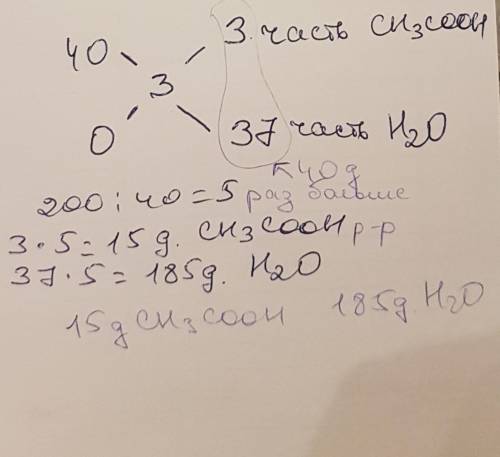 40 3. часть CH3COOH
3
0 37 часть H2O
40g
200 : 40 = 5 раз больше
3 · 5 = 15 g. CH3COOH р-р
37 · 5 = 185g. H2O
15g CH3COOH 185g. H2O